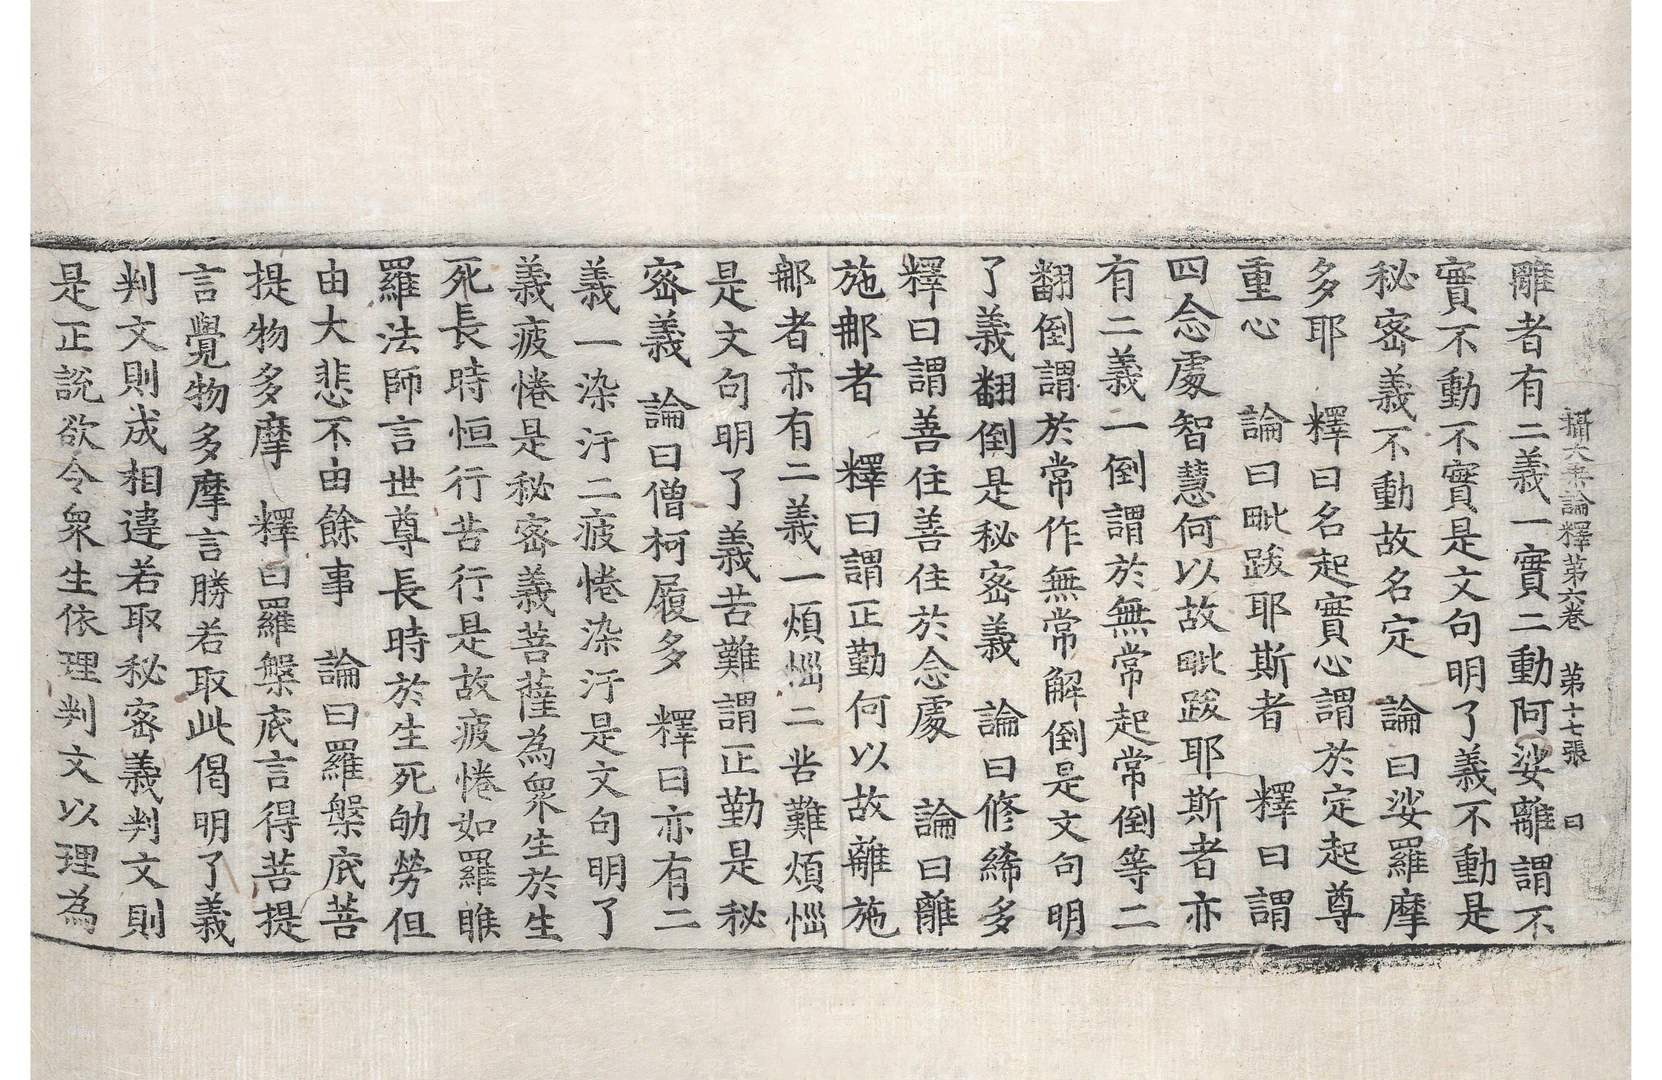 攝大乘論釋第六卷 第十七張 曰
離者有二義一實二動阿娑離謂不
實不動不實是文句明了義不動是
秘密義不動故名定 論曰娑羅摩
多耶 釋曰名起實心謂於定起尊
重心 論曰毗跋耶斯者 釋曰謂
四念處智慧何以故毗跋耶斯者亦
有二義一倒謂於無常起常倒等二
翻倒謂於常作無常解倒是文句明
了義翻倒是秘密義 論曰修絺多
釋曰謂善住善住於念處 論曰離
施郝者 釋曰謂正勤何以故離施
郝者亦有二義一煩惱二苦難煩惱
是文句明了義苦難謂正勤是秘
密義 論曰僧柯履多 釋曰亦有二
義一染汙二疲惓染汙是文句明了
義疲惓是秘密義菩薩為眾生於生
死長時恒行苦行是故疲惓如羅睺
羅法師言世尊長時於生死劬勞但
由大悲不由餘事 論曰羅槃底菩
提物多摩 釋曰羅槃底言得菩提
言覺物多摩言勝若取此偈明了義
判文則成相違若取秘密義判文則
是正說欲令眾生依理判文以理為